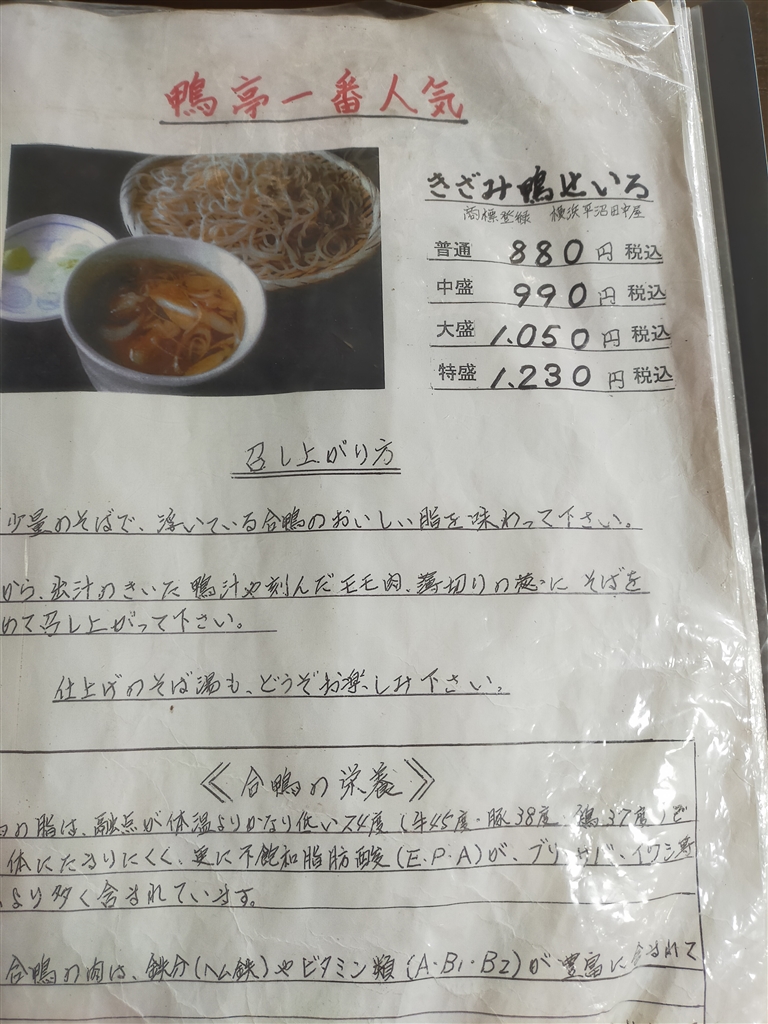 鴨亭一番人気
きざみ鴨せいろ
商標登録 横浜平沼田中屋
普通 880円 税込
中盛 990円 税込
大盛 1,050円 税込
特盛 1,230円 税込
召し上がり方
少量のそばで、浮いている合鴨のおいしい脂を味わって下さい。
から、出汁のきいた鴨汁や刻んだモモ肉、薄切りの葱に そばを
めて召し上がって下さい。
仕上げのそば湯も、どうぞお楽しみ下さい。
《合鴨の栄養》
の脂は、融点が体温よりかなり低い24度(牛45度・豚38度・鶏37度)で
体にたまりにくく、更に不飽和脂肪酸(E.P.A)が、ブリ・サバ・イワシ
より多く含まれています。
合鴨の肉は、鉄分(ヘム鉄)やビタミン類(A・B1・B2)が豊富に含まれて